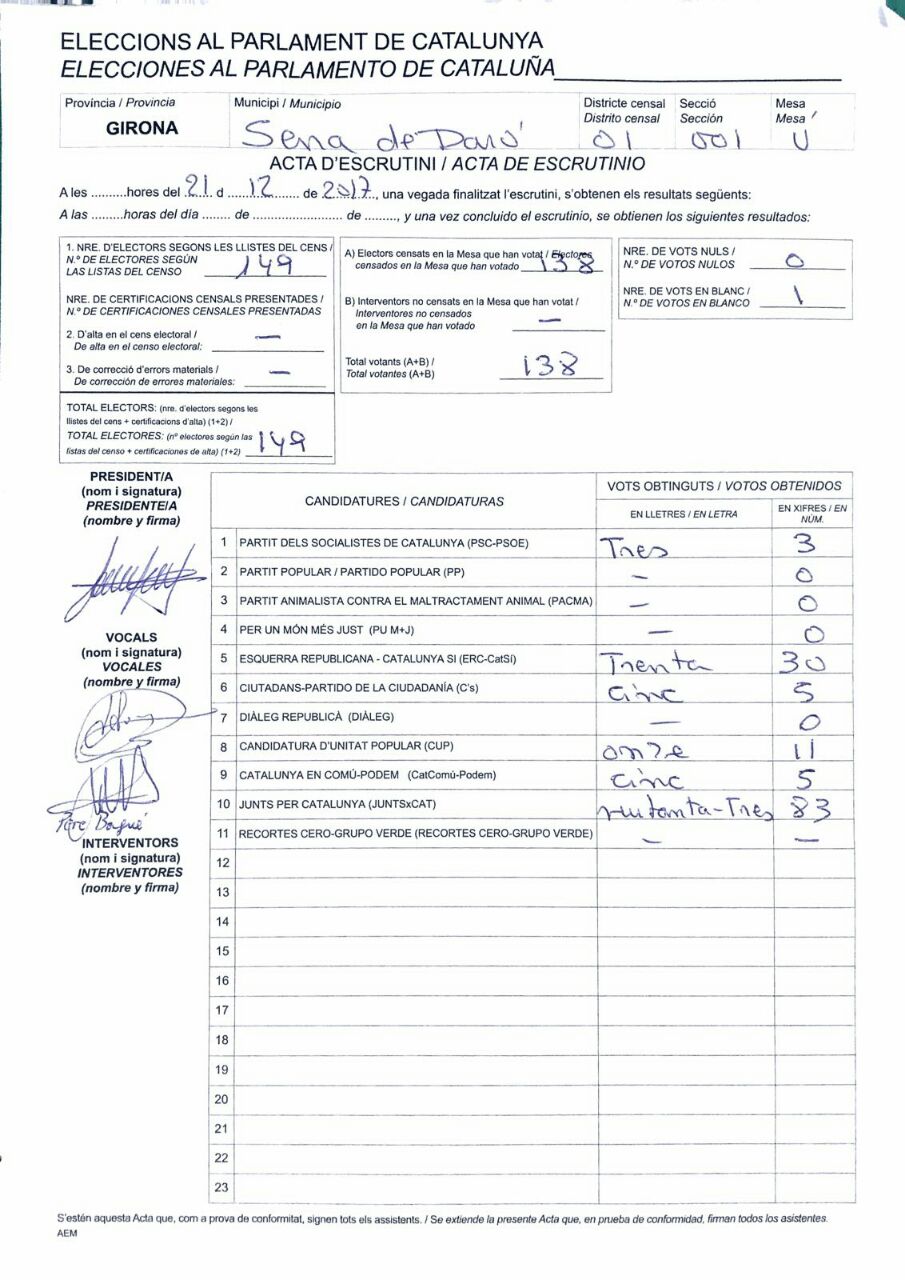 ELECCIONS AL PARLAMENT DE CATALUNYA
ELECCIONES AL PARLAMENTO DE CATALUÑA
Província / Provincia Municipi / Municipio Districte censal Secció Mesa
Distrito censal Sección Mesa
GIRONA Serra de Daró 01 001 U
ACTA D'ESCRUTINI / ACTA DE ESCRUTINIO
A les .........hores del 21 d 12 de 2017, una vegada finalitzat l'escrutini, s'obtenen els resultats següents:
A las .........horas del día ....... de ....................... de ........, y una vez concluido el escrutinio, se obtienen los siguientes resultados:
1. NRE. D'ELECTORS SEGONS LES LLISTES DEL CENS /
N.º DE ELECTORES SEGÚN
LAS LISTAS DEL CENSO 149
NRE. DE CERTIFICACIONS CENSALS PRESENTADES /
N.º DE CERTIFICACIONES CENSALES PRESENTADAS
2. D'alta en el cens electoral / —
De alta en el censo electoral:
3. De correcció d'errors materials / —
De corrección de errores materiales:
TOTAL ELECTORS: (nre. d'electors segons les
llistes del cens + certificacions d'alta) (1+2) /
TOTAL ELECTORES: (nº electores según las
listas del censo + certificaciones de alta) (1+2) 149
A) Electors censats en la Mesa que han votat / Electores
censados en la Mesa que han votado 138
B) Interventors no censats en la Mesa que han votat /
Interventores no censados
en la Mesa que han votado —
Total votants (A+B) /
Total votantes (A+B) 138
NRE. DE VOTS NULS /
N.º DE VOTOS NULOS 0
NRE. DE VOTS EN BLANC /
N.º DE VOTOS EN BLANCO 1
PRESIDENT/A
(nom i signatura)
PRESIDENTE/A
(nombre y firma)
VOCALS
(nom i signatura)
VOCALES
(nombre y firma)
Pere Bagué
INTERVENTORS
(nom i signatura)
INTERVENTORES
(nombre y firma)
CANDIDATURES / CANDIDATURAS VOTS OBTINGUTS / VOTOS OBTENIDOS
EN LLETRES / EN LETRA EN XIFRES / EN
NÚM.
1 PARTIT DELS SOCIALISTES DE CATALUNYA (PSC-PSOE) Tres 3
2 PARTIT POPULAR / PARTIDO POPULAR (PP) — 0
3 PARTIT ANIMALISTA CONTRA EL MALTRACTAMENT ANIMAL (PACMA) — 0
4 PER UN MÓN MÉS JUST (PU M+J) — 0
5 ESQUERRA REPUBLICANA - CATALUNYA SI (ERC-CatSí) Trenta 30
6 CIUTADANS-PARTIDO DE LA CIUDADANÍA (C's) cinc 5
7 DIÀLEG REPUBLICÀ (DIÀLEG) — 0
8 CANDIDATURA D'UNITAT POPULAR (CUP) onze 11
9 CATALUNYA EN COMÚ-PODEM (CatComú-Podem) cinc 5
10 JUNTS PER CATALUNYA (JUNTSxCAT) vuitanta-Tres 83
11 RECORTES CERO-GRUPO VERDE (RECORTES CERO-GRUPO VERDE) — —
12
13
14
15
16
17
18
19
20
21
22
23
S'estén aquesta Acta que, com a prova de conformitat, signen tots els assistents. / Se extiende la presente Acta que, en prueba de conformidad, firman todos los asistentes.
AEM